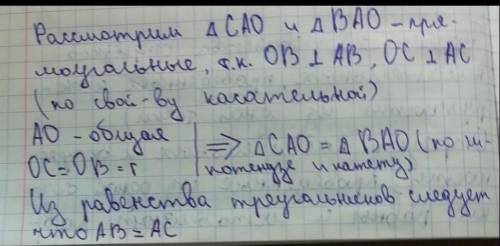 Рассмотрим △CAO и △BAO – пря-
моугольные, т.к. OB ⊥ AB, OC ⊥ AC
(по свой-ву касательной)
AO – общая
OC = OB = r
⟹ △CAO = △BAO (по ги-
потенузе и катету)
Из равенства треугольников следует
что AB = AC